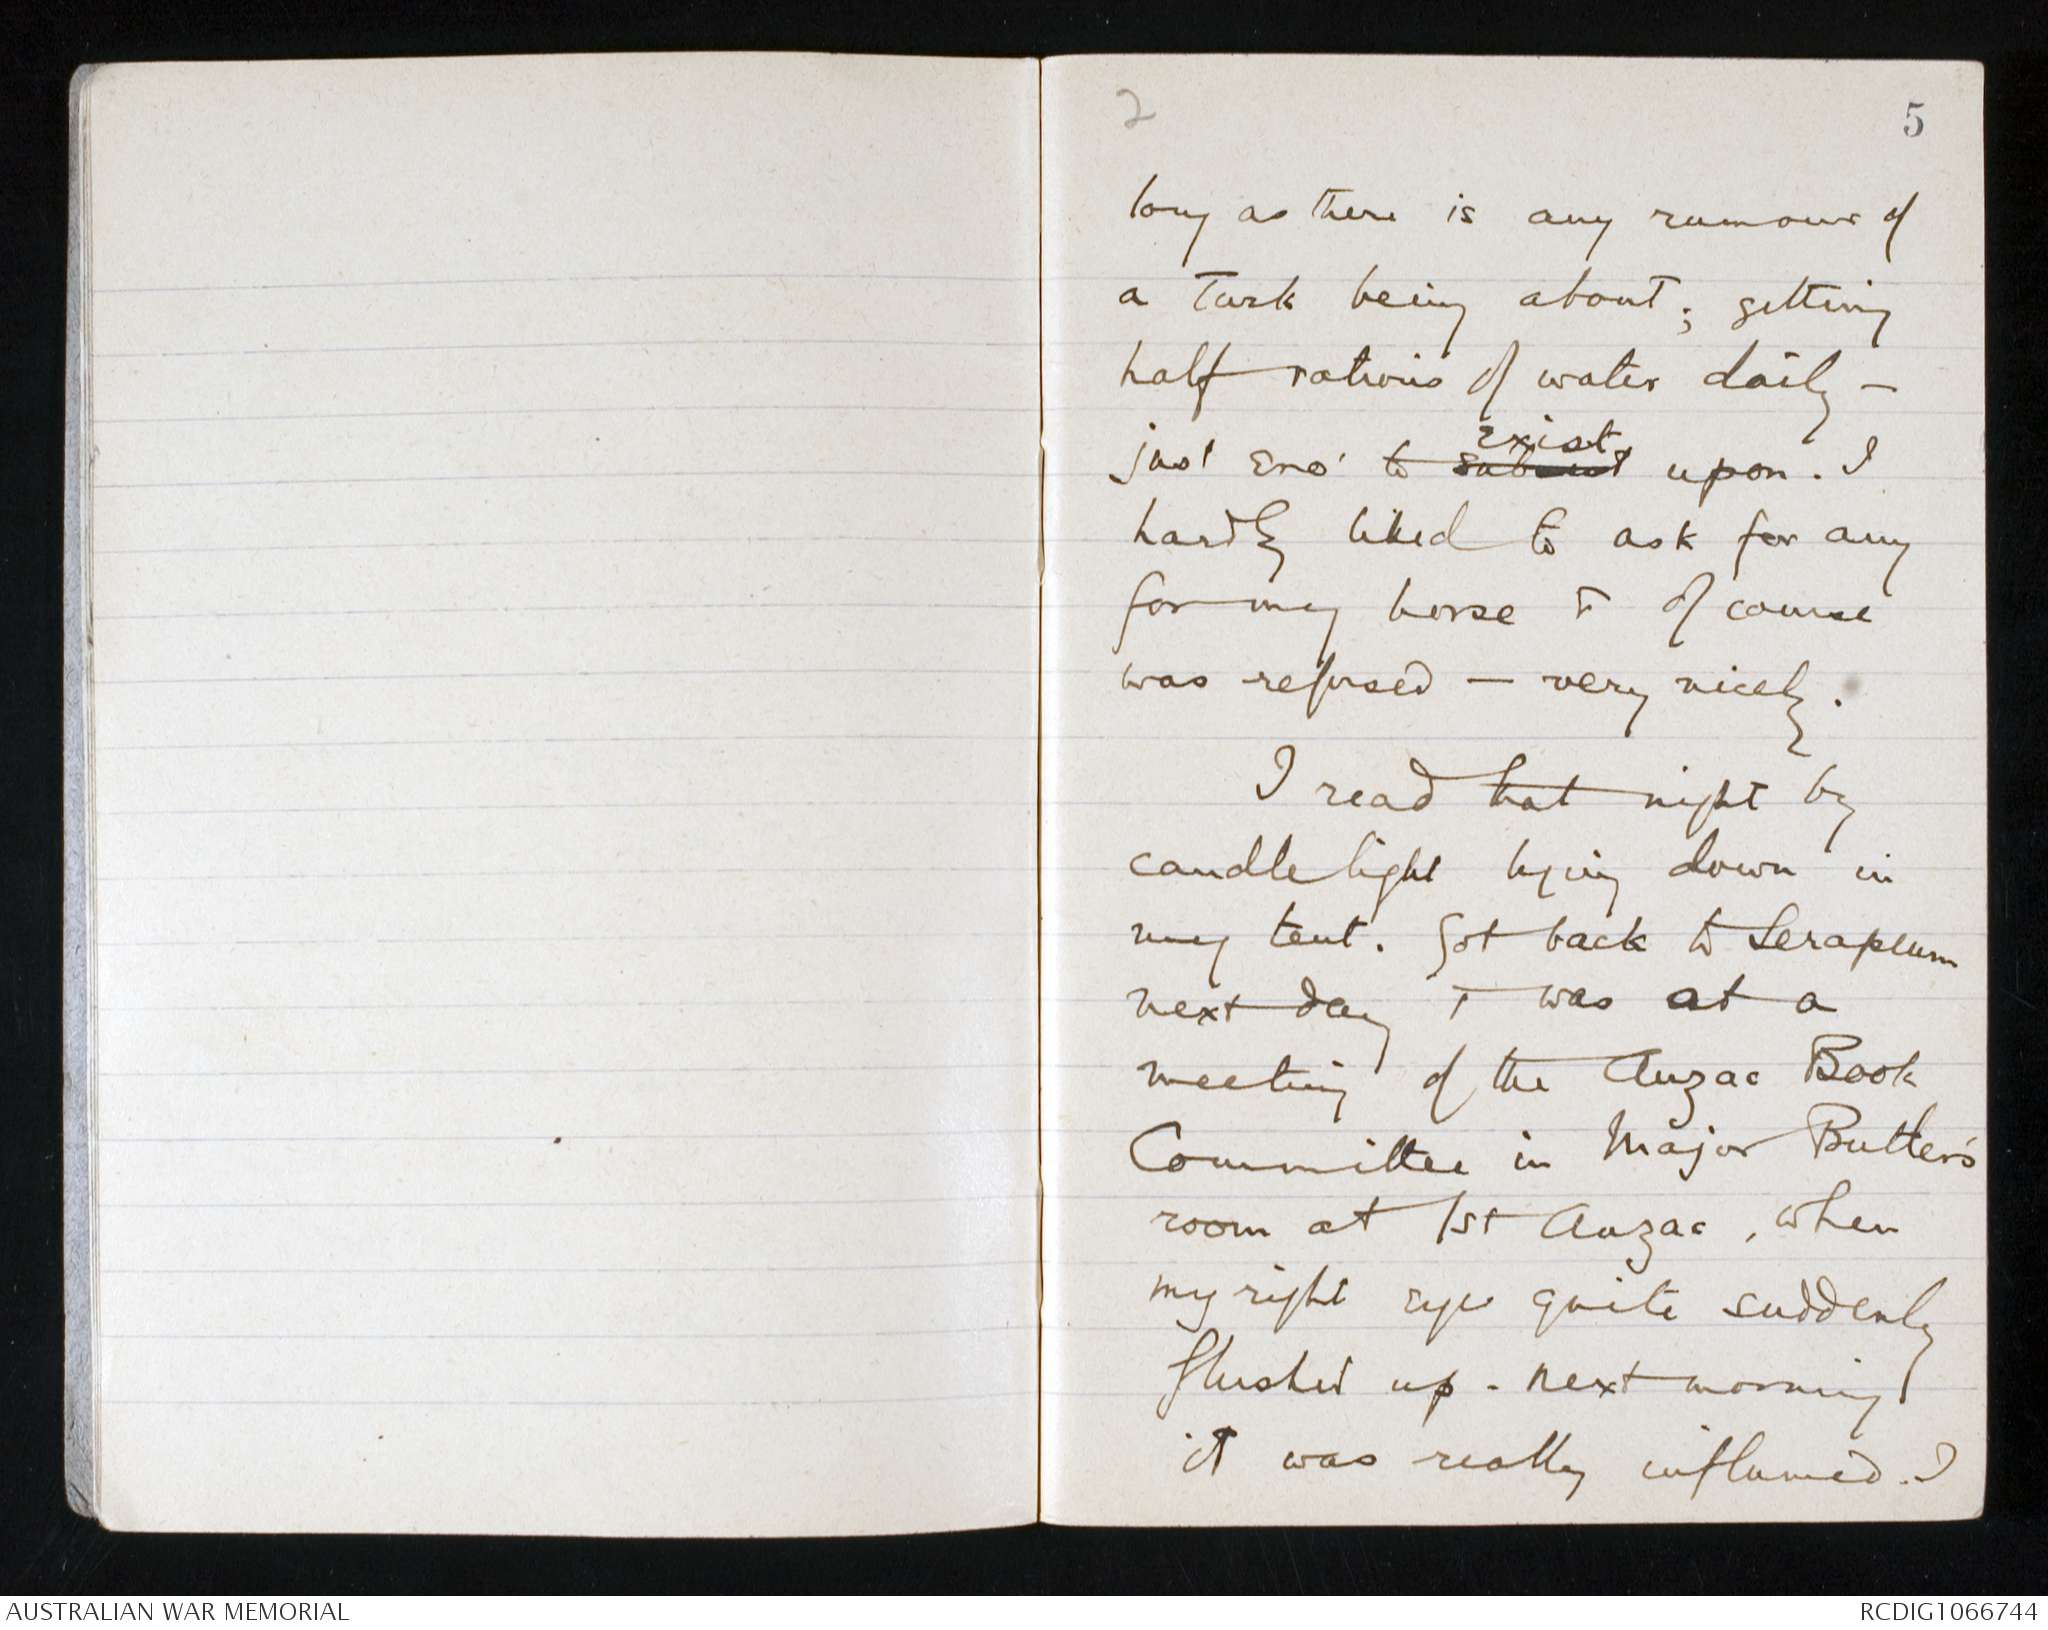 2
5
long as there is any rumour of
a Turk being about; getting
half rations of water daily —
exist
just eno' to upon. I
hardly liked to ask for any
for my horse & of course
was refused — very nicely.
I read that night by
candle light lying down in
my tent. Got back to Serapeum
next day & was at a
meeting of the Anzac Book
Committee in Major Butler's
room at 1st Anzac, when
my right eye quite suddenly
flushed up - next morning
it was really inflamed. I
AUSTRALIAN WAR MEMORIAL
RCDIG1066744